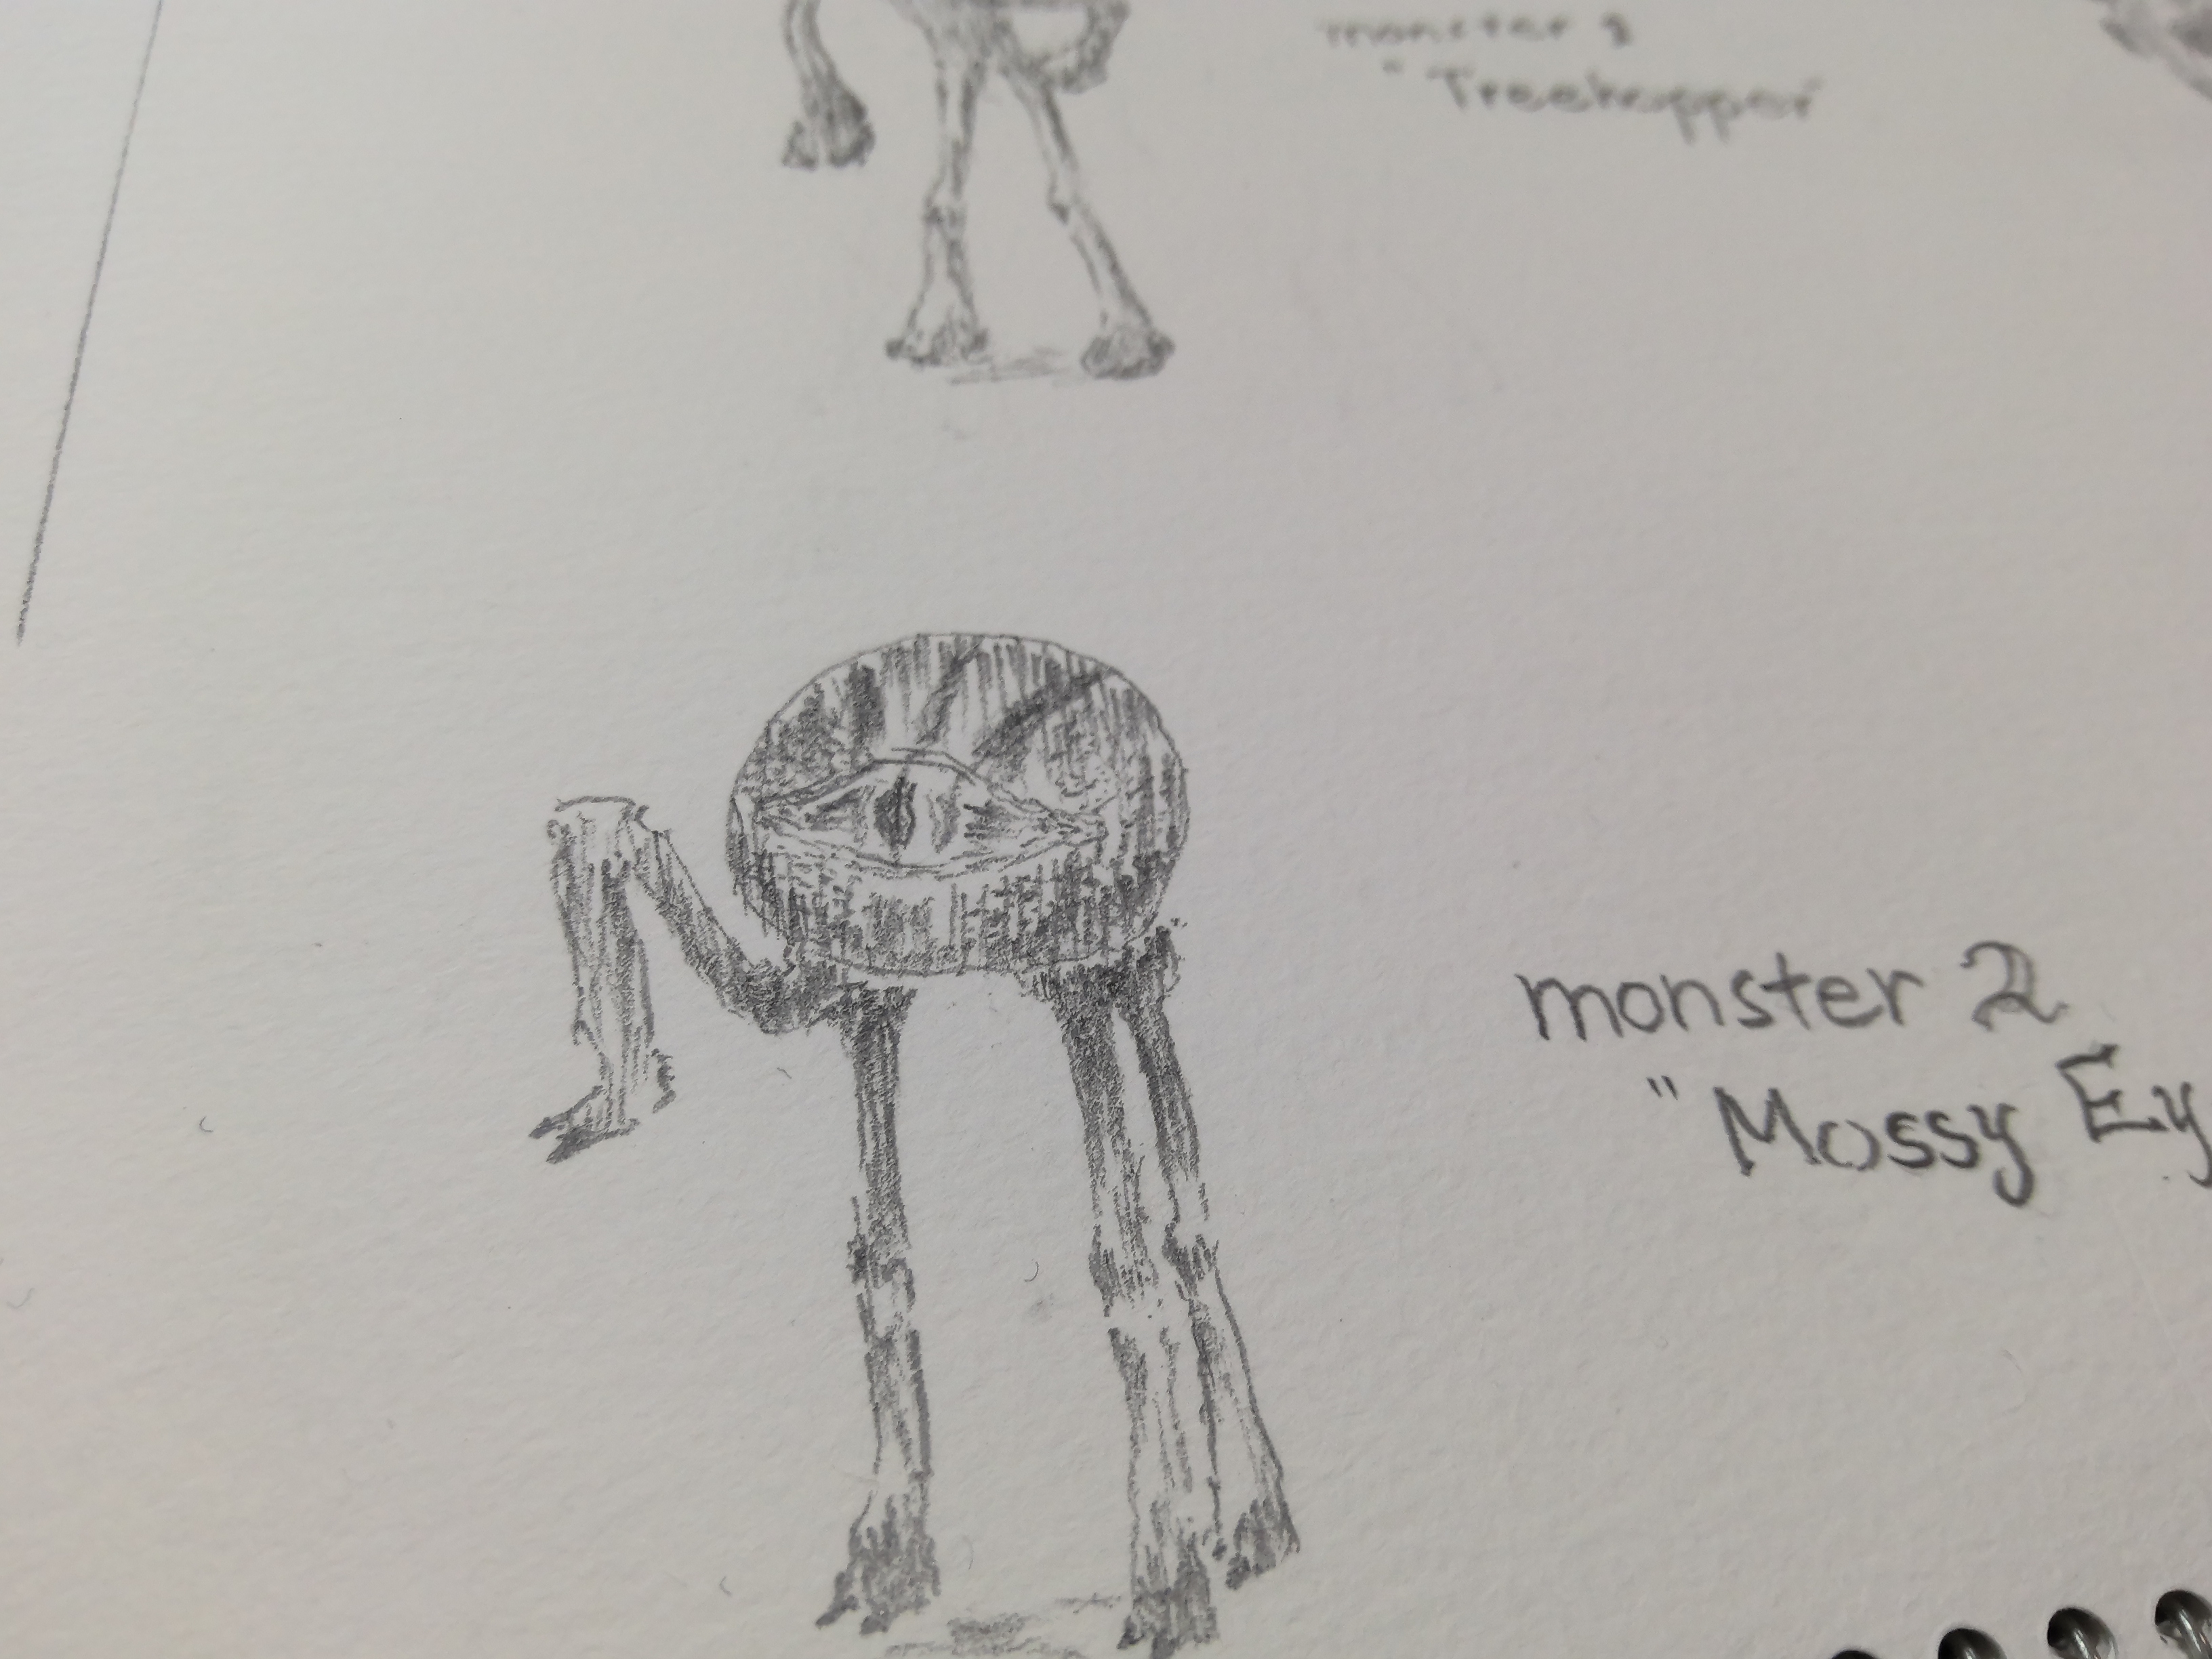 monster 1
"Treehopper"
monster 2
"Mossy Ey